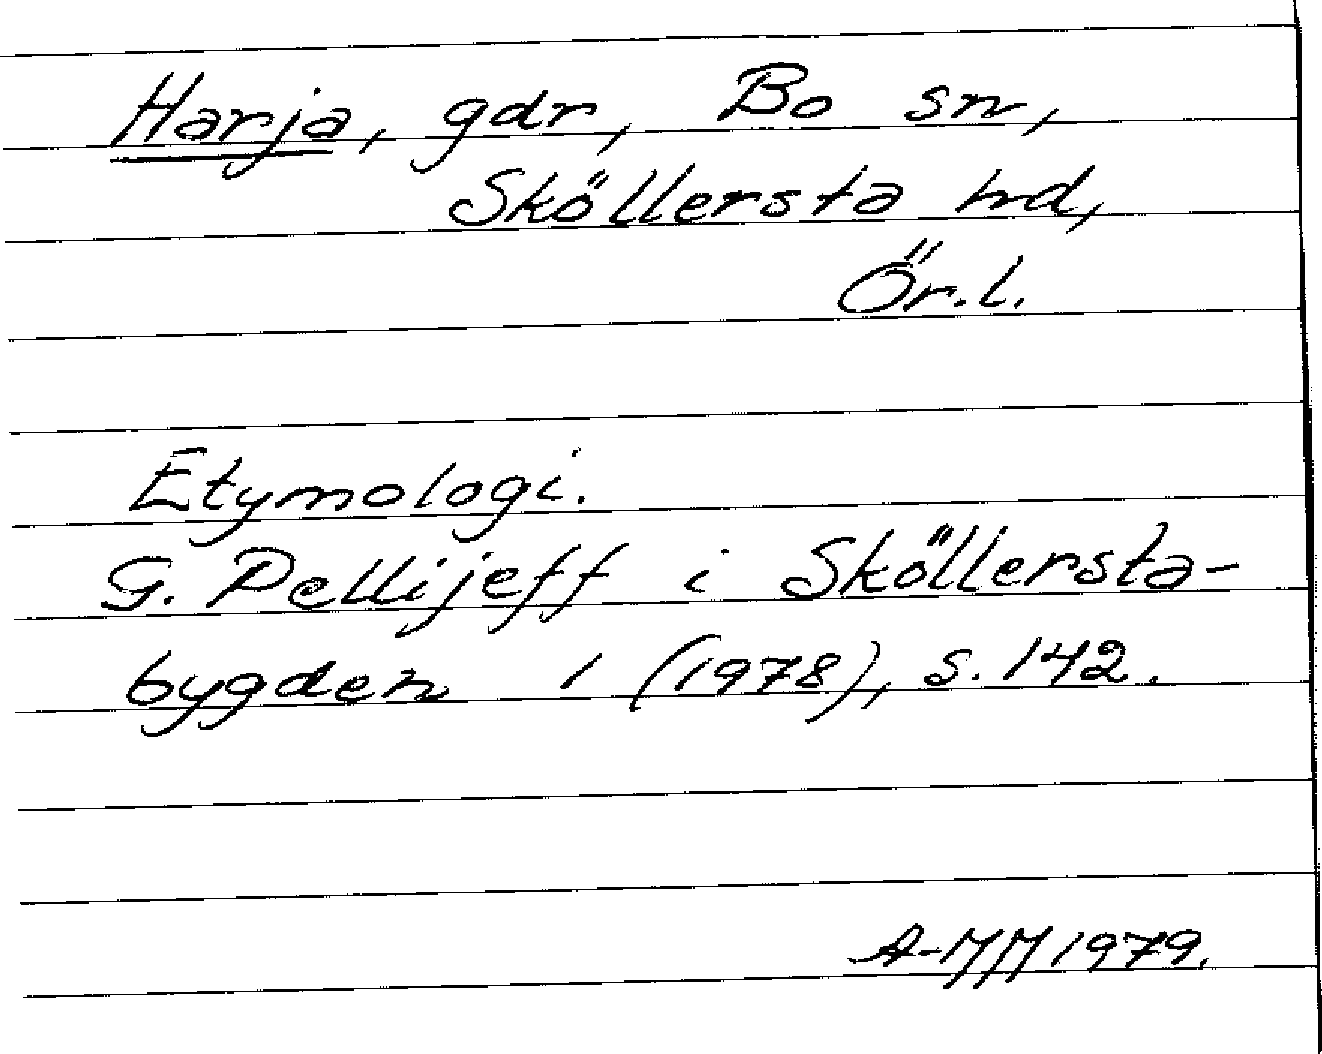 Harja, gdr, Bo sn,
Sköllersta hd,
Ör. l.
Etymologi.
G. Pellijeff i Sköllersta-
bygden 1 (1978), s. 142.
A-MM 1979.